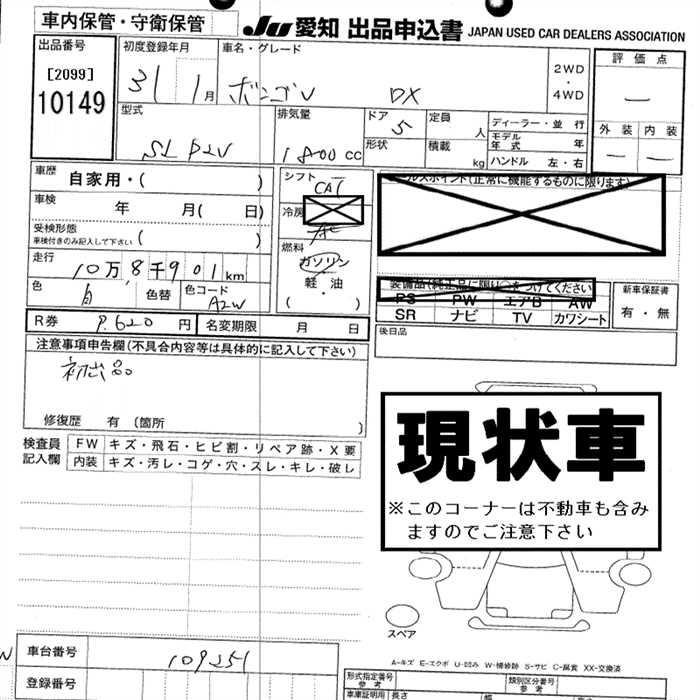 車内保管・守衛保管
JU 愛知 出品申込書 JAPAN USED CAR DEALERS ASSOCIATION
出品番号
[2099]
10149
初度登録年月
31 1月
車名・グレード
ボンゴV DX
2WD
・
4WD
評価点
―
外装 内装
― ―
型式
SLP2V
排気量
1800CC
ドア
5
形状
定員
人
積載
kg
ディーラー・並行
モデル年式 年
ハンドル 左・右
車歴
自家用・( )
車検
年 月( 日)
受検形態
車検付きのみ記入して下さい ( )
走行
10万8千901km
色
白
色替
色コード
A2W
シフト
CA1
冷房
AC
燃料
ガソリン
軽油
( ・ )
R券 9,620円
名変期限 月 日
ルスポイント(正常に機能するものに限ります)
装備品(純正品に限り○をつけてください)
PS PW エアB AW
SR ナビ TV カワシート
新車保証書
有・無
後日品
注意事項申告欄(不具合内容等は具体的に記入して下さい)
初出品
修復歴 有 (箇所 )
検査員記入欄
FW キズ・飛石・ヒビ割・リペア跡・X要
内装 キズ・汚レ・コゲ・穴・スレ・キレ・破レ
現状車
※このコーナーは不動車も含み
ますのでご注意下さい
スペア
A-キズ E-エクボ U-凹み W-補修跡 S-サビ C-腐食 XX-交換済
車台番号
109251
登録番号
形式指定番号
参考
類別区分番号
参考
車庫証明用
参考
長さ
幅
高さ